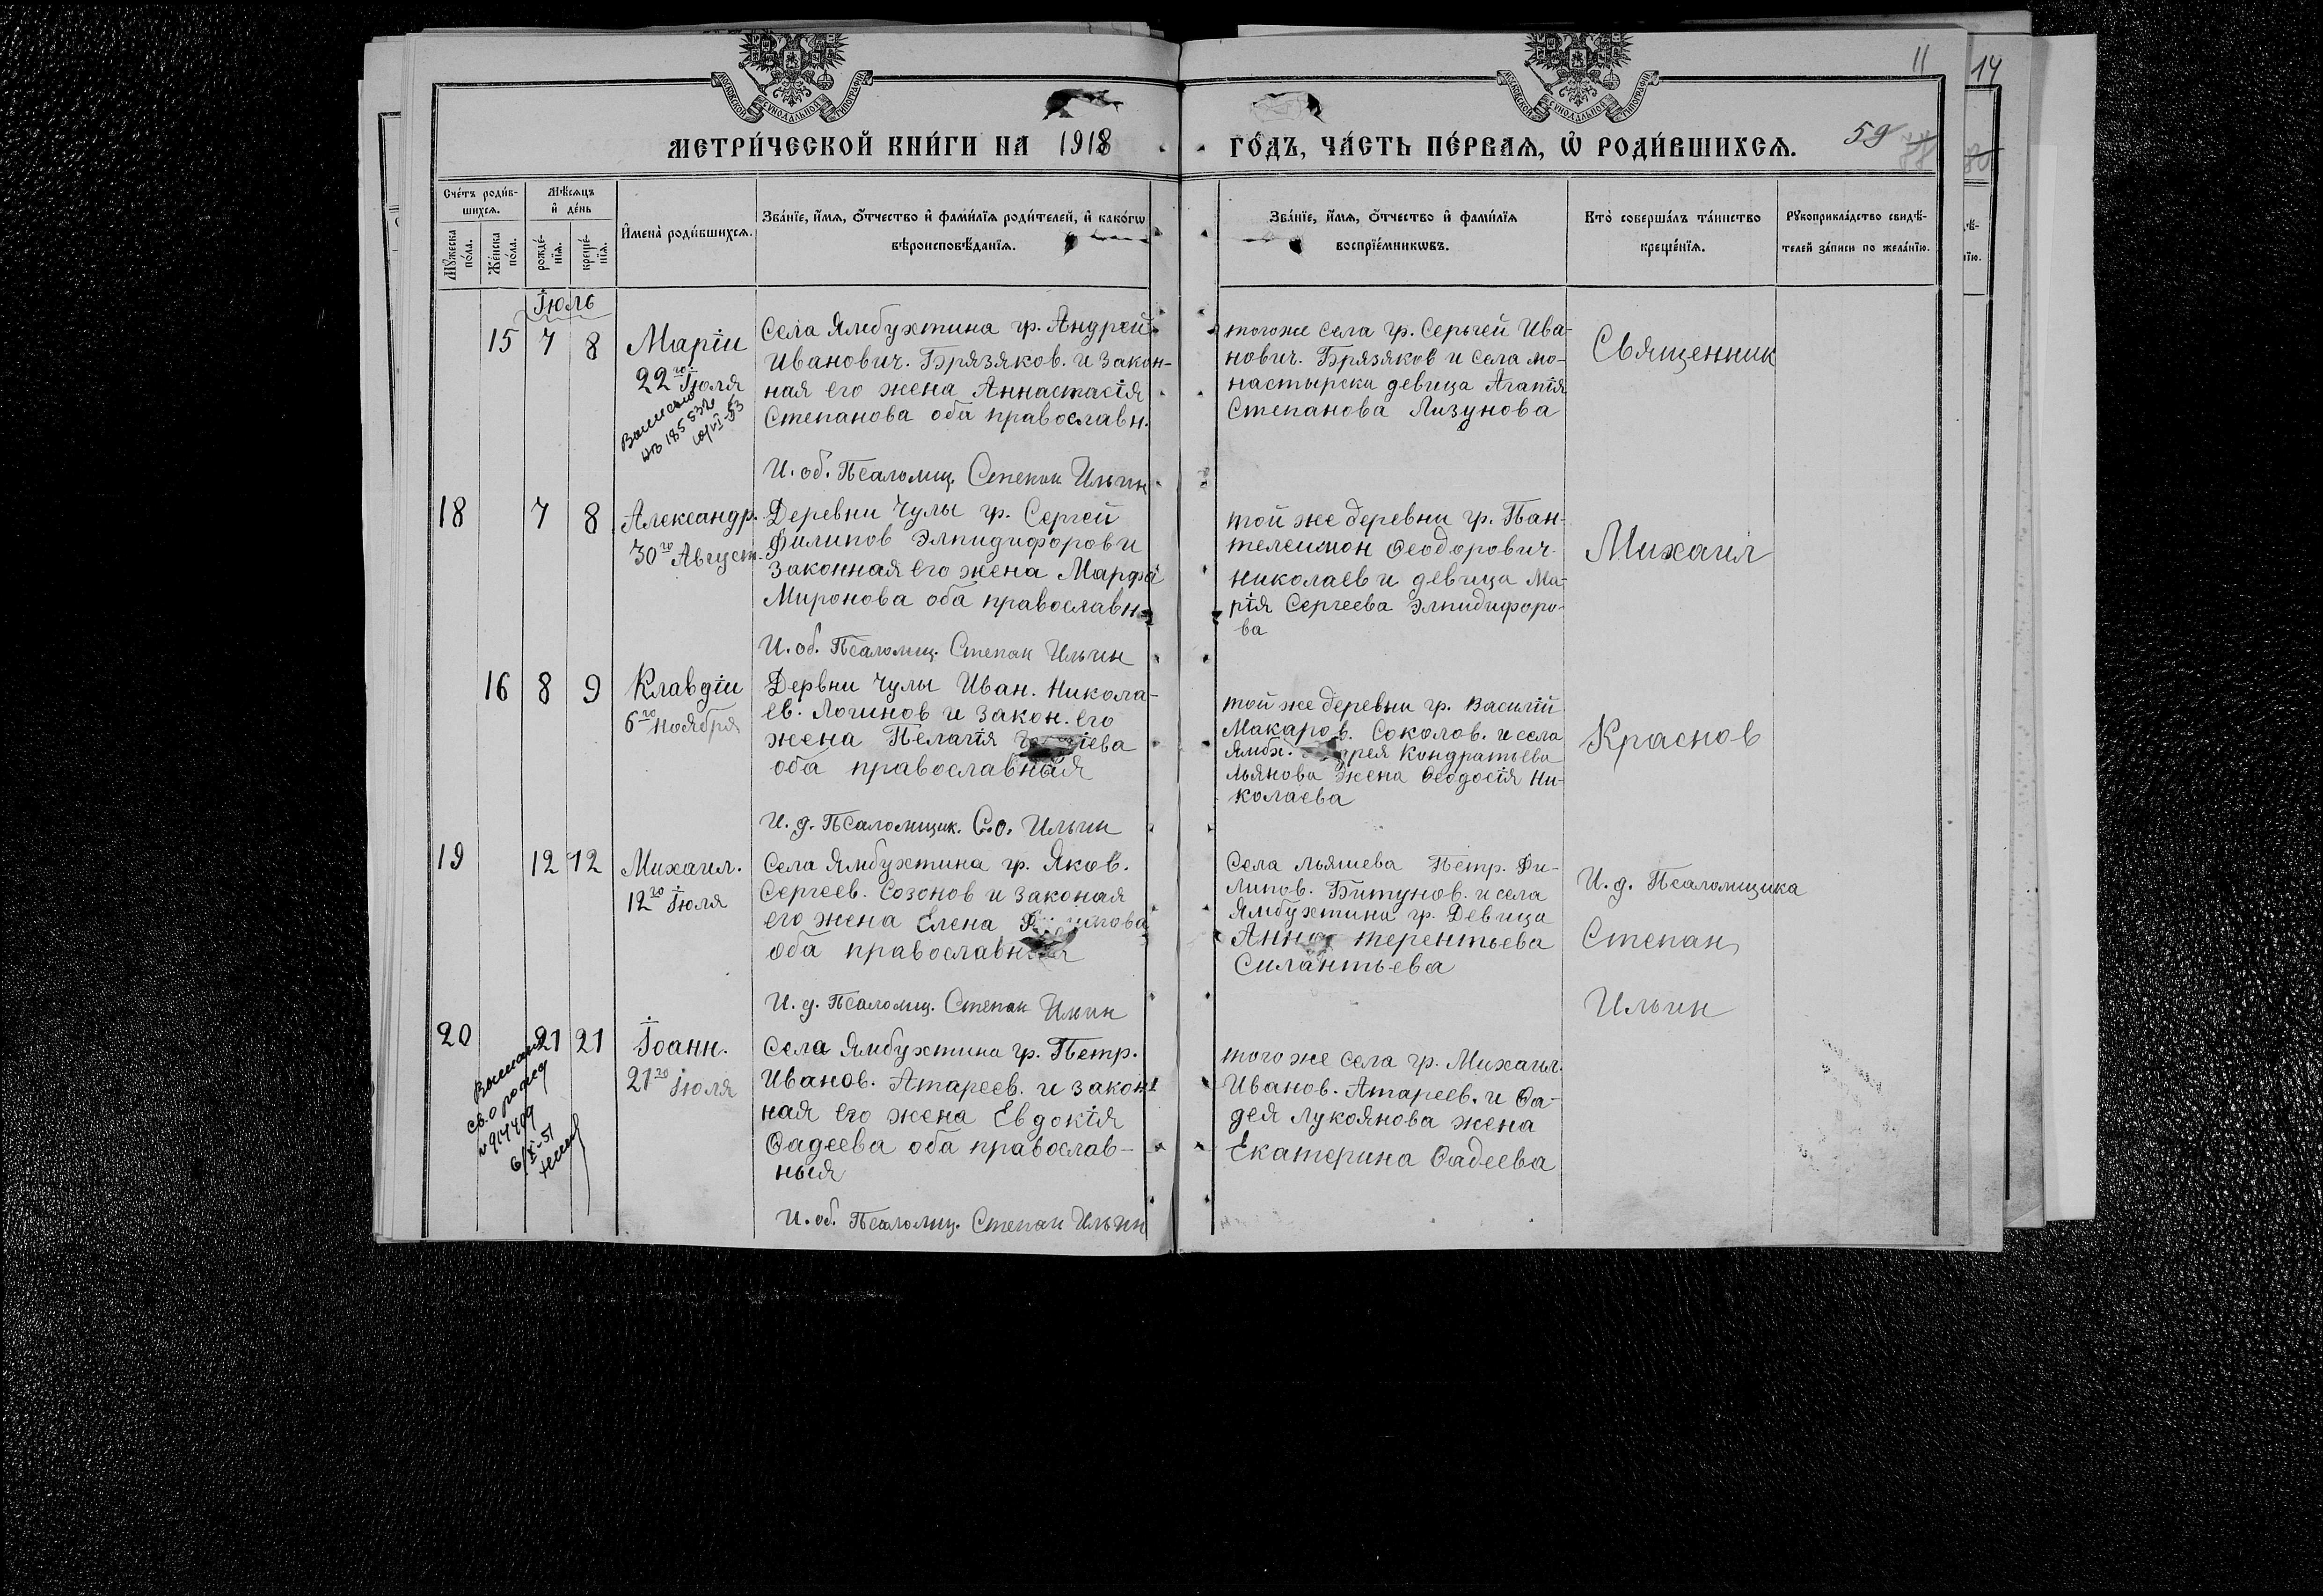 11
14
МОСКОВСКОЙ СѴНОДАЛЬНОЙ ТИПОГРАФІИ
МОСКОВСКОЙ СѴНОДАЛЬНОЙ ТИПОГРАФІИ
МЕТРИ́ЧЕСКОЙ КНИ́ГИ НА 1918
ГО́ДЪ, ЧА́СТЬ ПЕ́РВАѦ, Ѡ҆ РОДИ́ВШИХСѦ.
59
Сче́тъ роди́в-
шихсѧ.
Мѣ́сѧцъ
и҆ де́нь
И҆мена̀ роди́вшихсѧ.
Зва́нїе, и҆́мѧ, ѻ҆́тчество и҆ фами́лїѧ роди́телей, и҆ како́гѡ
вѣроисповѣ́данїѧ.
Мꙋ́жеска
по́ла.
Же́нска
по́ла.
рожде́-
нїѧ.
креще́-
нїѧ.
Зва́нїе, и҆́мѧ, ѻ҆́тчество и҆ фами́лїѧ
воспрїе́мникѡвъ.
Кто̀ соверша́лъ та́инство
креще́нїѧ.
Рꙋкоприкла́дство свидѣ́-
телей за́писи по жела́нїю.
Іюль
15 7 8
Маріи
22го Іюля
Села Ямбухтина гр. Андрей
Иванович. Брязяков. и закон-
ная его жена Аннастасія
Степанова оба православн.
И. об. Псаломщ. Степан Ильин
тогоже села гр. Сергей Ива-
нович. Брязяков и села мо-
настырски девица Агапія
Степанова Лизунова
Священник
18 7 8
Александр.
30го Август.
Деревни Чулы гр. Сергей
Филипов Элпидифоров и
законная его жена Марфа
Миронова оба православн
И. об. Псаломщ. Степан Ильин
той же деревни гр. Пан-
телеимон Ѳеодорович
Николаев и девица Ма-
рія Сергеева Элпидифоро-
ва
Михаил
16 8 9
Клавдіи
6го Ноября
Дервни Чулы Иван. Никола-
ев. Логинов и закон. его
жена Пелагія
оба православныя
И. д. Псаломщик. С.о. Ильин
той же деревни гр. Василій
Макаров. Соколов. и села
Ямбх. Кондратьева
льянова жена Ѳеодосія Ни-
колаева
Краснов
19 12 12
Михаил.
12го Іюля
Села Ямбухтина гр. Яков.
Сергеев. Созонов и законая
его жена Елена
оба православныя
И. д. Псаломщ. Степан Ильин
Села Льяшева Петр. Фи-
липов. Битунов. и села
Ямбухтина гр. Девица
Анна терентьева
Силантьева
И. д. Псаломщика
Степан
Ильин
20 21 21
Іоанн.
21го Іюля
Села Ямбухтина гр. Петр.
Иванов. Атареев. и закон
ная его жена Евдокія
Ѳадеева оба православ-
ныя
И. об. Псаломщ. Степан Ильин
того же села гр. Михаил.
Иванов. Атареев. и Ѳа-
дея Лукоянова жена
Екатерина Ѳадеева